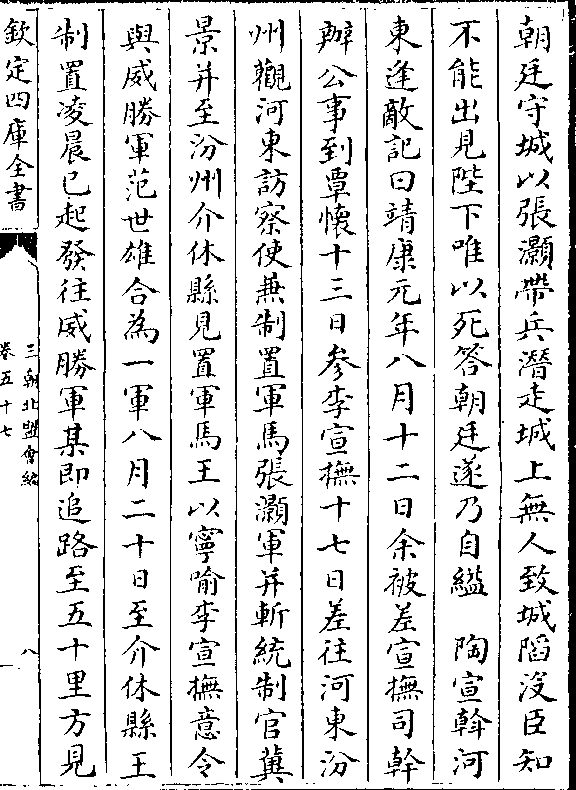 朝廷守城以張灝帶兵潛走城上無人致城陷沒臣知
不能出見陛下唯以死答朝廷遂乃自縊　陶宣幹河
東逢敵記曰靖康元年八月十二日余被差宣撫司幹
辦公事到覃懷十三日參李宣撫十七日差往河東汾
州觀河東訪察使兼制置軍馬張灝軍并斬統制官冀
景并至汾州介休縣見置軍馬王以寧喻李宣撫意令
與威勝軍范世雄合為一軍八月二十日至介休縣王
制置凌晨已起發往威勝軍某即追路至五十里方見
欽定四庫全書
三朝北盟會編
卷五十七
八